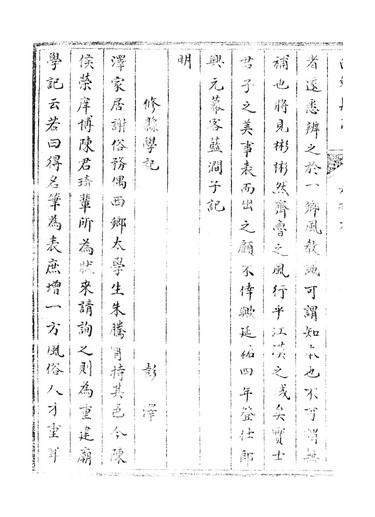 者遂悉辨之於一鄉風敎誠可謂知本也不可謂無
補也將見彬彬然齊魯之風行乎江漢之域矣實士
君子之美事表而出之顧不偉歟延祐四年登仕郎
興元幕客藍澗子記
明
修縣學記
彭澤
澤家居謝俗務偶西鄉太學生朱騰霄持其邑令陳
侯榮庠博陳君琦輩所為狀來請詢之則為重建廟
學記云若曰得名筆為表庶增一方風俗人才重耳